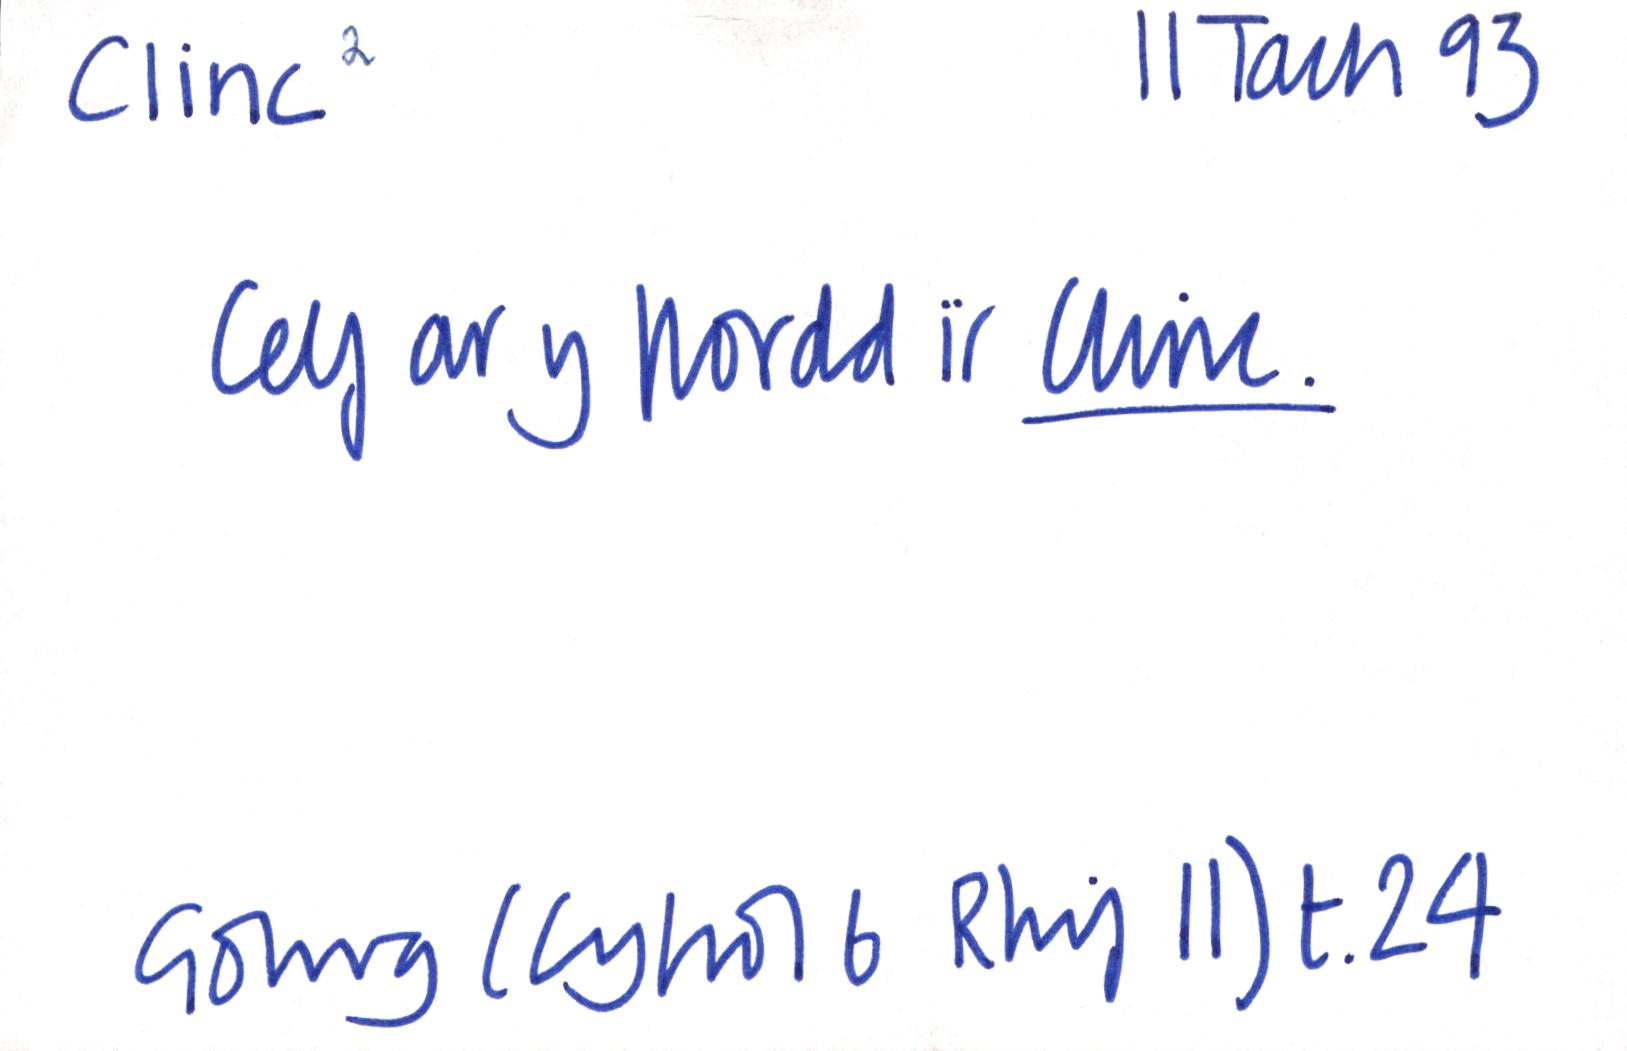 Clinc² 11 Tach 93
Celf ar y ffordd i'r Clinc.
Golwg (Cyfrol 6 Rhif 11) t.24